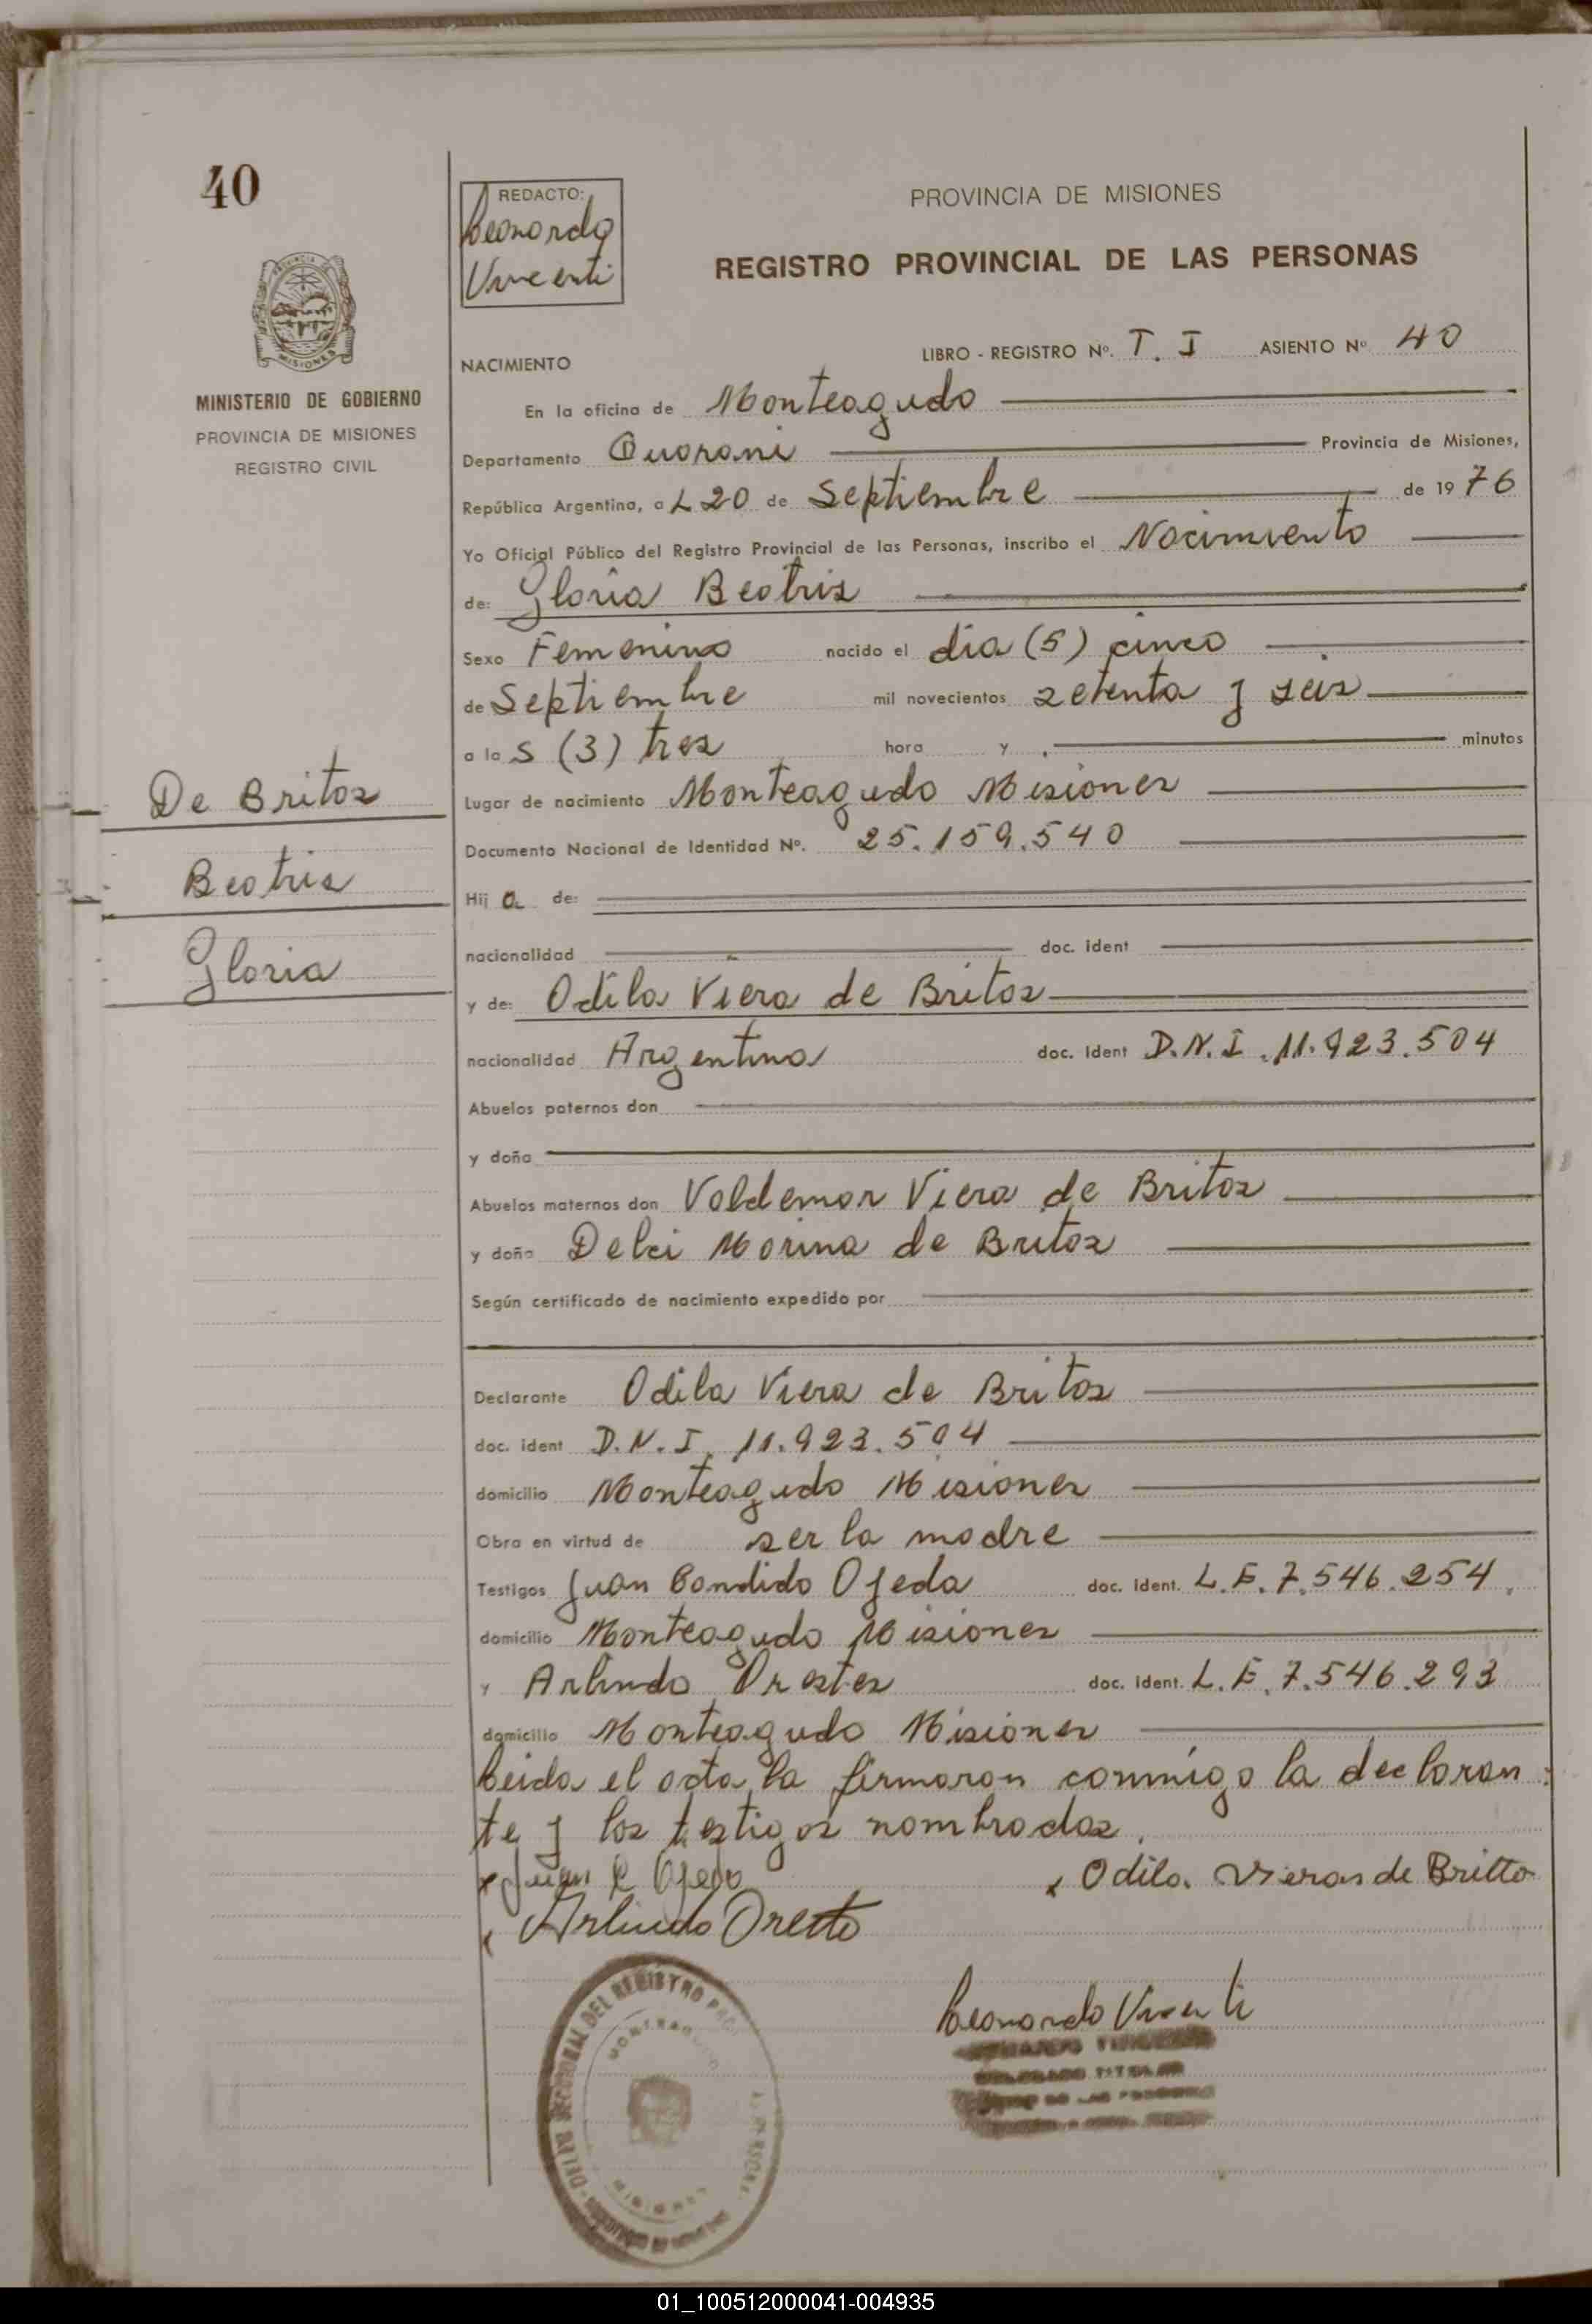 40
REDACTO:
Leonardo
Vicenti
PROVINCIA DE MISIONES
REGISTRO PROVINCIAL DE LAS PERSONAS
MISIONES
MINISTERIO DE GOBIERNO
PROVINCIA DE MISIONES
REGISTRO CIVIL
LIBRO - REGISTRO Nº. T. I ASIENTO Nº 40
NACIMIENTO
En la oficina de Monteagudo
Departamento Guarani Provincia de Misiones,
República Argentina, a L 20 de Septiembre de 1976
Yo Oficial Público del Registro Provincial de las Personas, inscribo el Nacimiento
de: Gloria Beatris
Sexo Femenino nacido el dia (5) cinco
de Septiembre mil novecientos setenta y seis
a las (3) tres hora y minutos
De Britos
Lugar de nacimiento Monteagudo Misiones
Documento Nacional de Identidad Nº. 25.159.540
Beatris
Hija de:
Gloria
nacionalidad doc. ident
y de: Odila Viera de Britos
nacionalidad Argentina doc. Ident D.N.I. 11.923.504
Abuelos paternos don
y doña
Abuelos maternos don Valdemar Viera de Britos
y doña Delci Morina de Britos
Según certificado de nacimiento expedido por
Declarante Odila Viera de Britos
doc. ident D.N.I. 11.923.504
domicilio Monteagudo Misiones
Obra en virtud de ser la madre
Testigos Juan Candido Ojeda doc. ident. L.E. 7.546.254.
domicilio Monteagudo Misiones
y Arlindo Orestes doc. ident. L.E. 7.546.293
domicilio Monteagudo Misiones
Leida el acta, la firmaron conmigo la declaran
te y los testigos nombrados.
x Juan C Ojeda
x Odila. Vieras de Britto
x Arlindo Oresto
DEL REGISTRO
MISIONES
Leonardo Vicenti
TITULAR
01_100512000041-004935